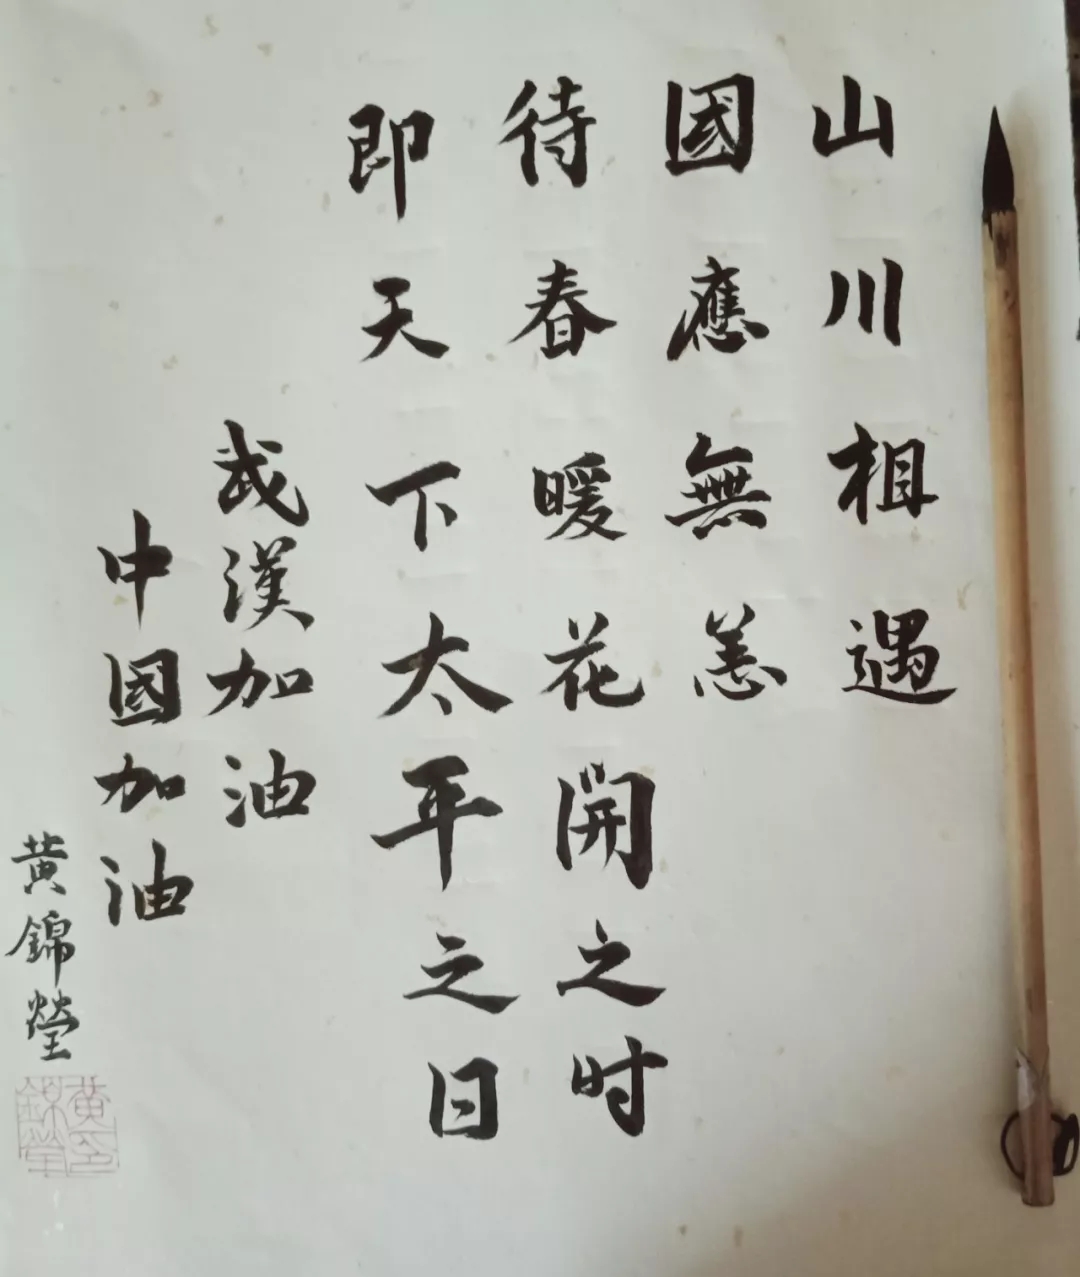 山川相遇
國應無恙
待春暖花開之时
即天下太平之日
武漢加油
中國加油
黄錦瑩
黄錦瑩印